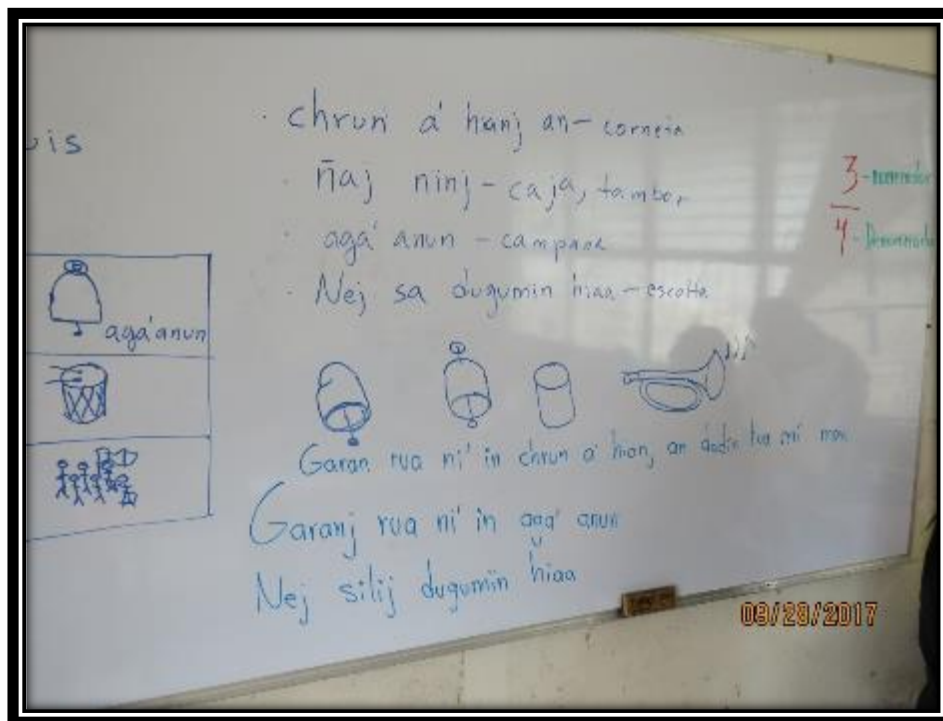 uis
agá'anun
· chrun á' hanj an - corneta
· n̄aj ninj - caja, tambor
· agá' anun - campana
· Nej sa dugumin hiaa - escolta
3 - numerador
4 - Denominador
Garan rua ni' in chrun a' hian, an dadin rua ni'
Garanj rua ni' in aga' anun
Nej silij dugumin hiaa
09/28/2017